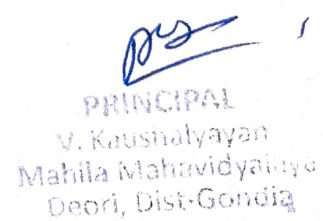 PRINCIPAL
V. Kaushalyayan
Mahila Mahavidyalaya
Deori, Dist-Gondia